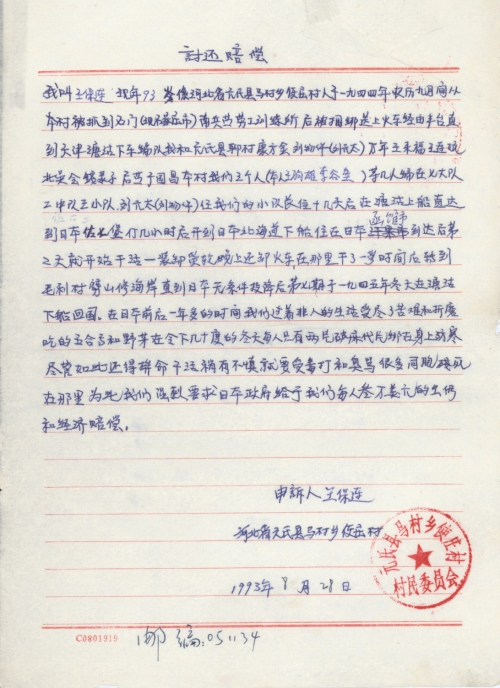 討还赔偿
我叫王保连 现年73岁 系河北省元氏县马村乡 村人于一九四四年农历九月间从
本村被抓到石门(现石家庄市)南兵营劳工训练所后被捆绑送上火车经由丰台直
到天津塘沽下车编队我和元氏县 村康方会 刘物仲(刘九太)万年 王来福 王连琐
北吴会 钱 子 吕营子 固昌 本村我们三个人( )等几人编在七大队
二中队三小队,刘九太(刘物仲)任我们的小队长住十几天后在塘沽上船直达
到日本佐世堡 几小时后开到日本北海道下船住在日本函馆市到达后第
二天就开始干活一装卸货 晚上还卸火车在那里干了一 时间后转到
毛利村劈山修海岸直到日本无条件投降后第 期于一九四五年冬天在塘沽
下船回国。在日本前后一年多的时间我们过着非人的生活受尽了苦难和折磨
吃的五合面和野菜在零下几十度的冬天每人只有两片破麻代 绑在身上防寒
尽管如此还得拼命干活稍有不慎就要受毒打和臭骂很多同胞 死
在那里为此我们强烈要求日本政府给于我们每人叁万美元的
和经济赔偿。
申訴人 王保连
河北省元氏县马村乡 村
元氏县马村乡 庄村
村民委员会
1993年8月28日
C0801919
邮编:051134